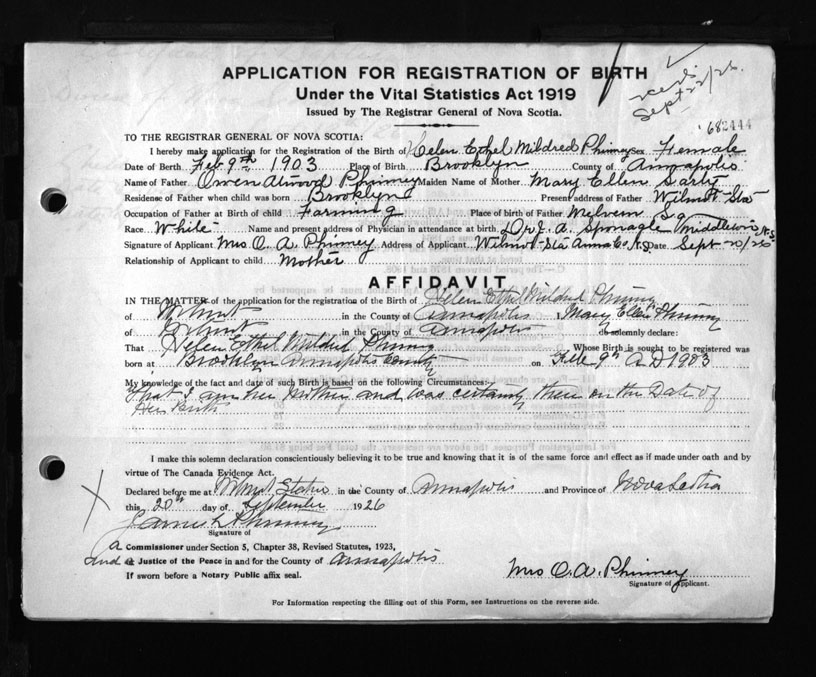 APPLICATION FOR REGISTRATION OF BIRTH
Under the Vital Statistics Act 1919
Issued by The Registrar General of Nova Scotia.
Sept 22/26.
682444
TO THE REGISTRAR GENERAL OF NOVA SCOTIA:
I hereby make application for the Registration of the Birth of Helen Ethel Mildred Phinney Sex Female
Date of Birth Feb 9th 1903 Place of Birth Brooklyn County of Annapolis
Name of Father Owen Atwood Phinney Maiden Name of Mother Mary Ellen
Residense of Father when child was born Brooklyn Present address of Father Wilmot Sta
Occupation of Father at Birth of child Farming Place of birth of Father Melvern Sq
Race White Name and present address of Physician in attendance at birth Dr J. A. Sponagle Middleton N.S.
Signature of Applicant Mrs O. A. Phinney Address of Applicant Wilmot Sta Anna Co N.S. Date Sept 20/26
Relationship of Applicant to child Mother
AFFIDAVIT
IN THE MATTER of the application for the registration of the Birth of Helen Ethel Mildred Phinney
of Wilmot in the County of Annapolis I Mary Ellen Phinney
of Wilmot in the County of Annapolis do solemnly declare:
That Helen Ethel Mildred Phinney Whose Birth is sought to be registered was
born at Brooklyn Annapolis County on Feb 9th A D 1903
My knowledge of the fact and date of such Birth is based on the following Circumstances:-
That I am her Mother and was certainly there on the Date of
Her Birth
I make this solemn declaration conscientiously believing it to be true and knowing that it is of the same force and effect as if made under oath and by
virtue of The Canada Evidence Act.
Declared before me at Wilmot Station in the County of Annapolis and Province of Nova Scotia
this 20th day of September 1926
Phinney
Signature of
a Commissioner under Section 5, Chapter 38, Revised Statutes, 1923,
and a Justice of the Peace in and for the County of Annapolis
If sworn before a Notary Public affix seal.
Mrs O. A. Phinney
Signature of Applicant.
For Information respecting the filling out of this Form, see Instructions on the reverse side.